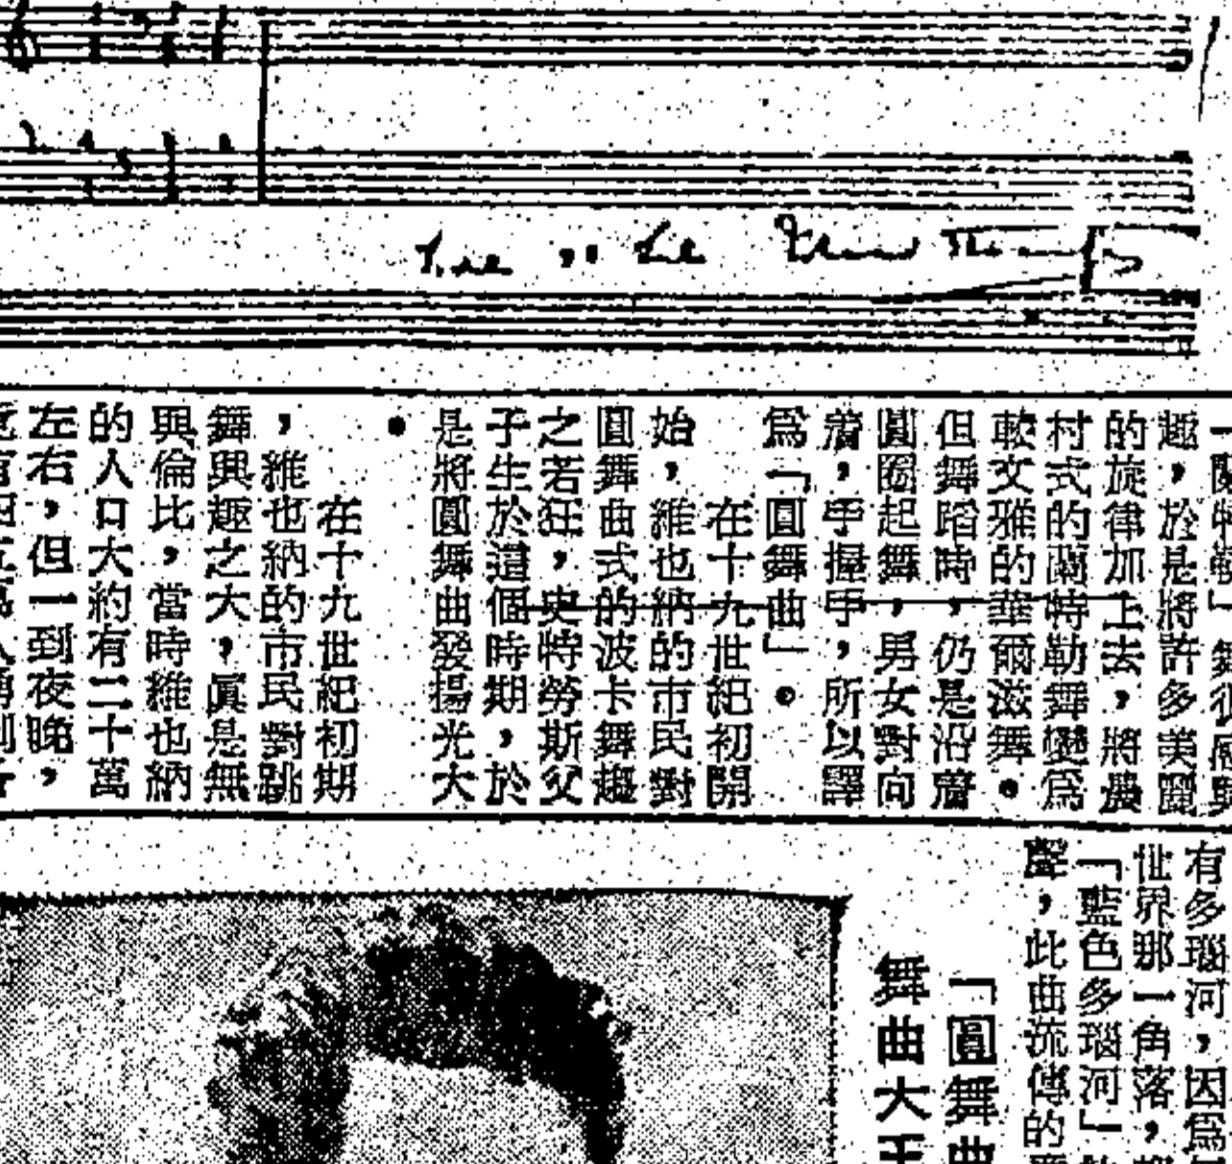 趣，於是將許多美麗
的旋律加上去，將農
村式的蘭特勒舞變爲
軟文雅的華爾滋舞。
但舞蹈時，仍是沿着
圓圈起舞，男女對向
着，手握手，所以譯
爲「圓舞曲」。
在十九世紀初開
始，維也納的市民對
圓舞曲式的波卡舞趨
之若狂，史特勞斯父
子生於這個時期，於
是將圓舞曲發揚光大
。
在十九世紀初期
，維也納的市民對跳
舞興趣之大，眞是無
與倫比，當時維也納
的人口大約有二十萬
左右，但一到夜晚，
有多瑙河，因爲
世界那一角落，
「藍色多瑙河」
聲，此曲流傳的
「圓舞曲
舞曲大王